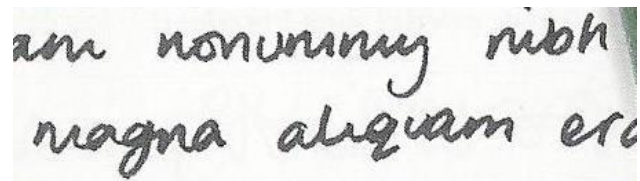 am nonummy nibh
magna aliquam era